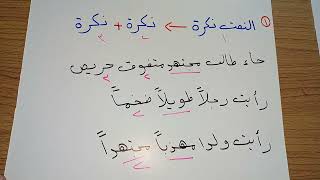 ① النعت نكرة ← نكرة + نكرة
جاء طالب مجتهد متفوق حريص
رأيت رجلاً طويلاً ضخماً
رأيت ولدا مهذباً مجتهداً